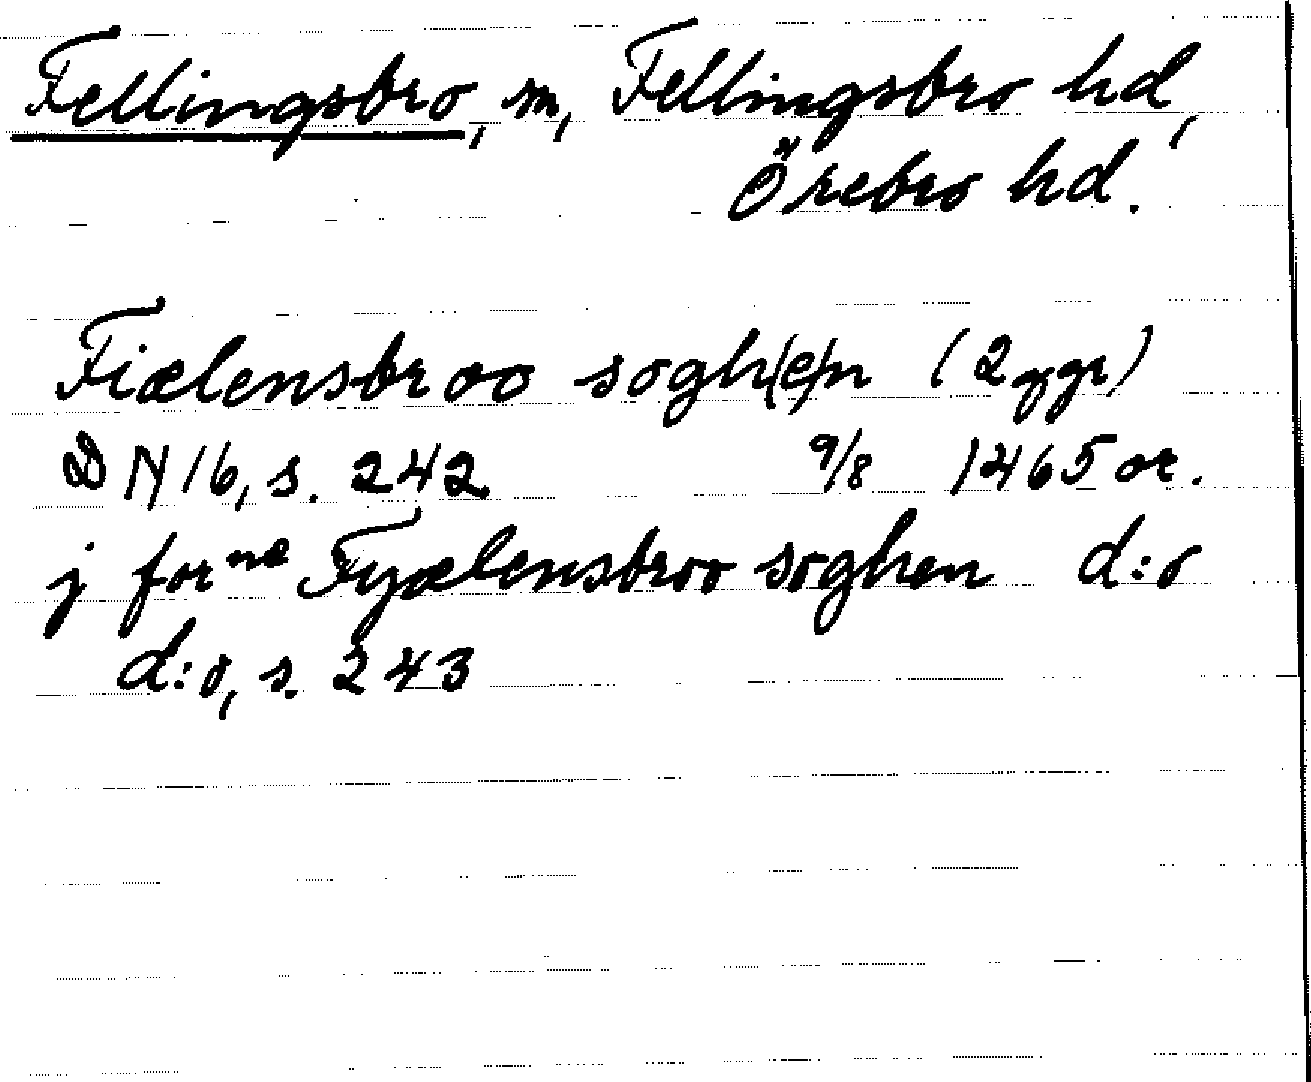 Fellingsbro, sn, Fellingsbro hd,
Örebro hd.
Fiælensbroo sogh(e)n (2 ggr)
DN 16, s. 242 9/8 1465 or.
j forne Fyælensbroo soghen d:o
d:o, s. 243